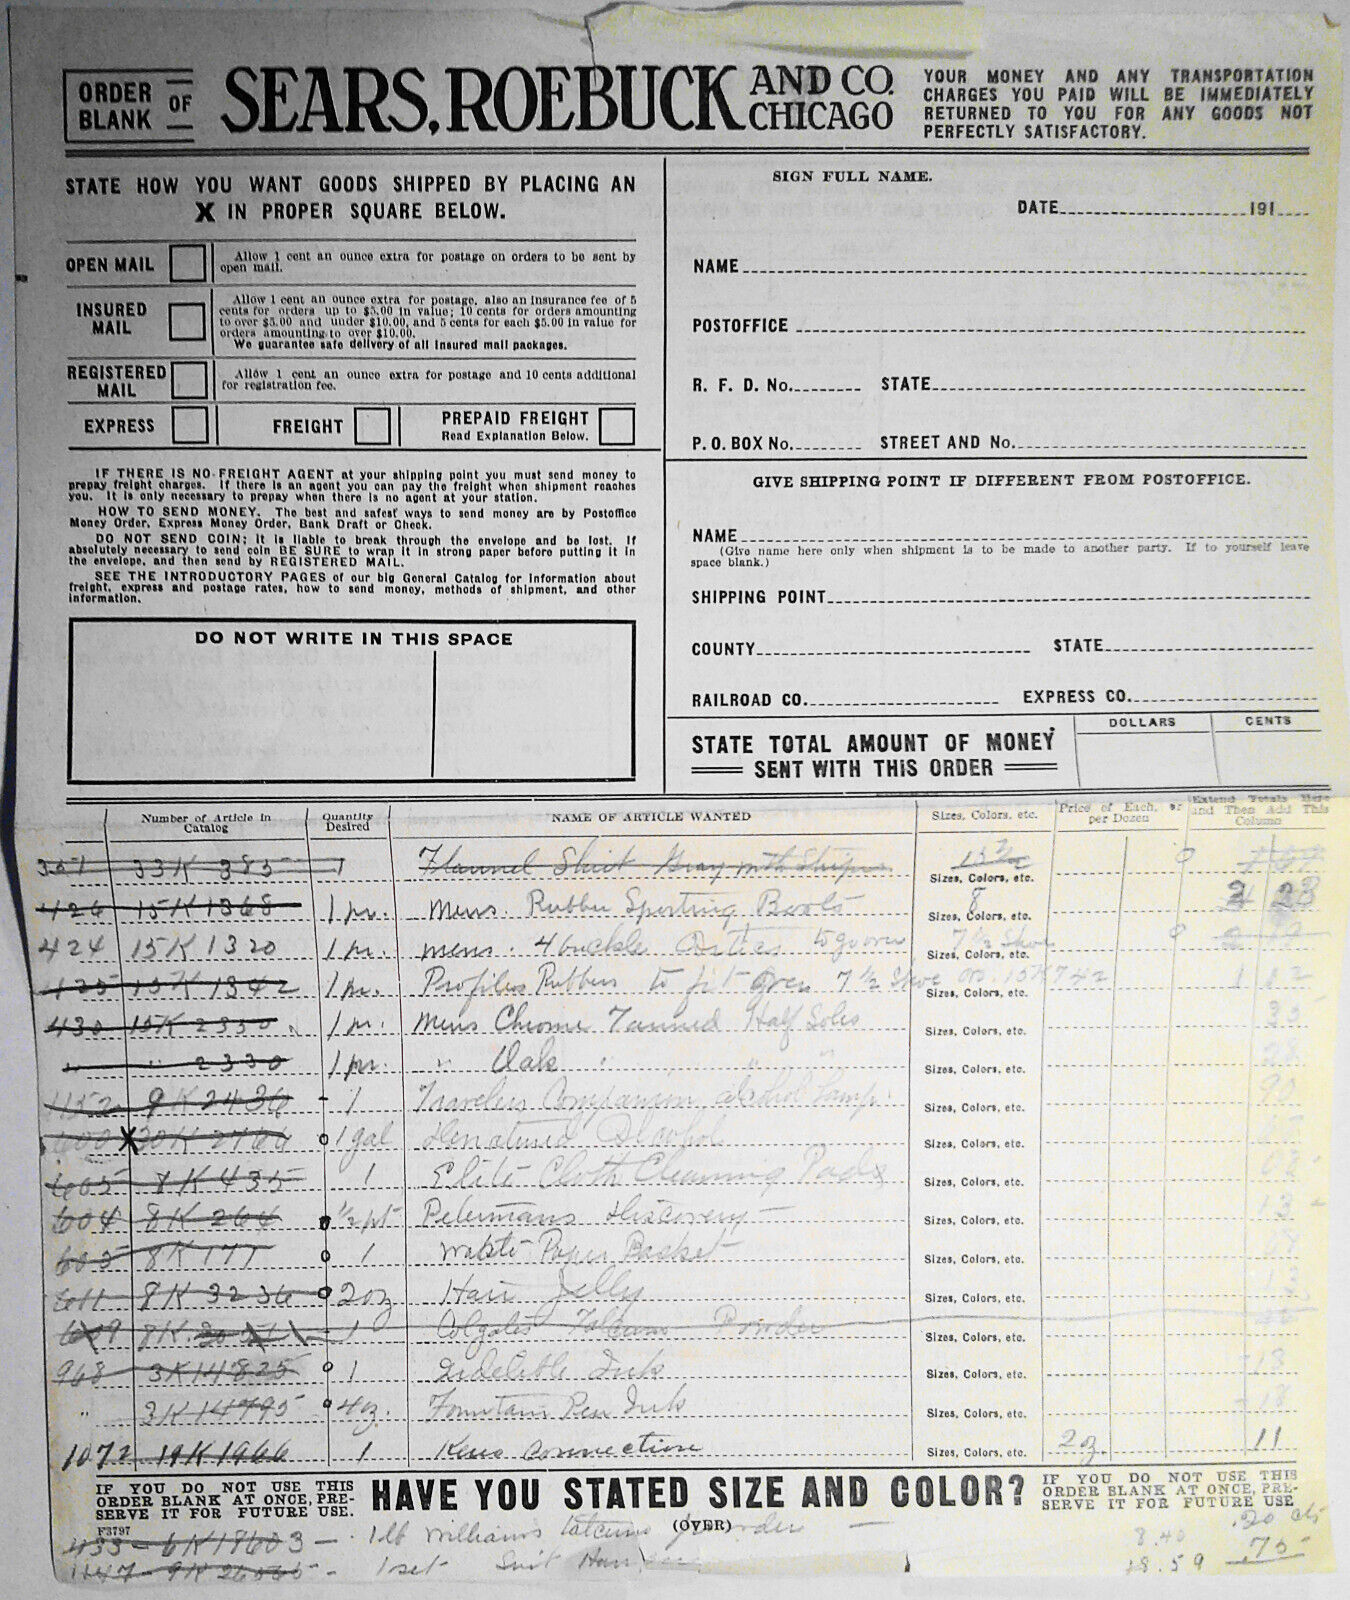 ORDER BLANK OF SEARS, ROEBUCK AND CO. CHICAGO
YOUR MONEY AND ANY TRANSPORTATION
CHARGES YOU PAID WILL BE IMMEDIATELY
RETURNED TO YOU FOR ANY GOODS NOT
PERFECTLY SATISFACTORY.
STATE HOW YOU WANT GOODS SHIPPED BY PLACING AN
X IN PROPER SQUARE BELOW.
OPEN MAIL
Allow 1 cent an ounce extra for postage on orders to be sent by
open mail.
INSURED
MAIL
Allow 1 cent an ounce extra for postage, also an insurance fee of 5
cents for orders up to $5.00 in value; 10 cents for orders amounting
to over $5.00 and under $10.00, and 5 cents for each $5.00 in value for
orders amounting to over $10.00.
We guarantee safe delivery of all insured mail packages.
REGISTERED
MAIL
Allow 1 cent an ounce extra for postage and 10 cents additional
for registration fee.
EXPRESS
FREIGHT
PREPAID FREIGHT
Read Explanation Below.
IF THERE IS NO FREIGHT AGENT at your shipping point you must send money to
prepay freight charges. If there is an agent you can pay the freight when shipment reaches
you. It is only necessary to prepay when there is no agent at your station.
HOW TO SEND MONEY. The best and safest ways to send money are by Postoffice
Money Order, Express Money Order, Bank Draft or Check.
DO NOT SEND COIN; it is liable to break through the envelope and be lost. If
absolutely necessary to send coin BE SURE to wrap it in strong paper before putting it in
the envelope, and then send by REGISTERED MAIL.
SEE THE INTRODUCTORY PAGES of our big General Catalog for information about
freight, express and postage rates, how to send money, methods of shipment, and other
information.
DO NOT WRITE IN THIS SPACE
SIGN FULL NAME.
DATE 191
NAME
POSTOFFICE
R. F. D. No. STATE
P. O. BOX No. STREET AND No.
GIVE SHIPPING POINT IF DIFFERENT FROM POSTOFFICE.
NAME
(Give name here only when shipment is to be made to another party. If to yourself leave
space blank.)
SHIPPING POINT
COUNTY STATE
RAILROAD CO. EXPRESS CO.
STATE TOTAL AMOUNT OF MONEY
SENT WITH THIS ORDER
DOLLARS CENTS
Number of Article in
Catalog
Quantity
Desired
NAME OF ARTICLE WANTED
Sizes, Colors, etc.
Price of Each, or
per Dozen
Extend Totals Here
and Then Add This
Column
351 33K 385 1 Flannel Shirt Gray with Stripe 15 1/2
Sizes, Colors, etc.
426 15K1368 1 pr. Mens Rubber Sporting Boots 8 2 23
Sizes, Colors, etc.
424 15K 1320 1 pr. mens 4 buckle Artics to go over 7 1/2 Shoe
Sizes, Colors, etc.
425 15K 1342 1 pr. Profiles Rubbers to fit over 7 1/2 Shoe or 15K742 1 12
Sizes, Colors, etc.
430 15K 2350 1 pr. Mens Chrome Tanned Half Soles 35
Sizes, Colors, etc.
" " 2330 1 pr. " Oak " " " 28
Sizes, Colors, etc.
1152 9K2436 1 Travelers Companion alcohol Lamp. 90
Sizes, Colors, etc.
600 X 30K 2466 1 gal Denatured Alcohol
Sizes, Colors, etc.
605 8K435 1 Elite Cloth Cleaning Pads
Sizes, Colors, etc.
604 8K 264 1/2 pt Petermans Discovery
Sizes, Colors, etc.
603 8K177 1 Waste Paper Basket
Sizes, Colors, etc.
611 8K 3236 2 oz Hair Jelly
Sizes, Colors, etc.
609 8K 1 Colgates Talcum Powder
Sizes, Colors, etc.
968 3K14825 1 Indelible Ink 18
Sizes, Colors, etc.
" 3K14795 4 oz. Fountain Pen Ink 18
Sizes, Colors, etc.
1072 19K1966 1 Keus Connection 2 oz. 11
Sizes, Colors, etc.
IF YOU DO NOT USE THIS
ORDER BLANK AT ONCE, PRE-
SERVE IT FOR FUTURE USE.
F3797
HAVE YOU STATED SIZE AND COLOR?
(OVER)
IF YOU DO NOT USE THIS
ORDER BLANK AT ONCE, PRE-
SERVE IT FOR FUTURE USE
433 - 6K18603 - 1 lb Williams talcum powder - 8.40 .20 cts
1147 - 9K 1 set Suit 18.59 .75